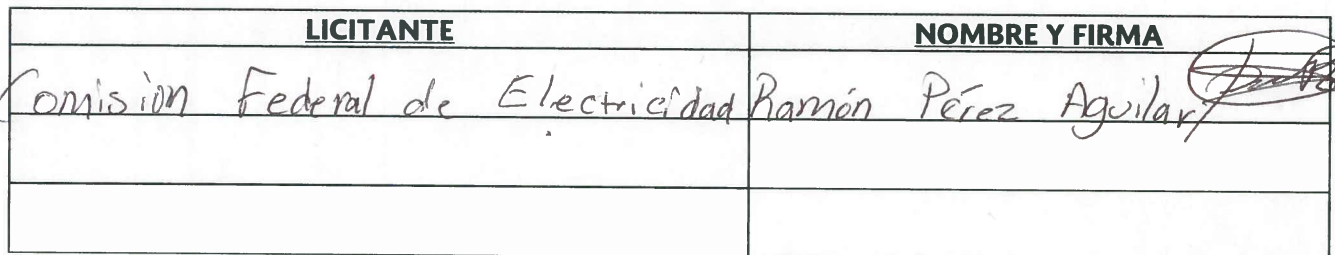 LICITANTE NOMBRE Y FIRMA
Comision Federal de Electricidad Ramón Pérez Aguilar